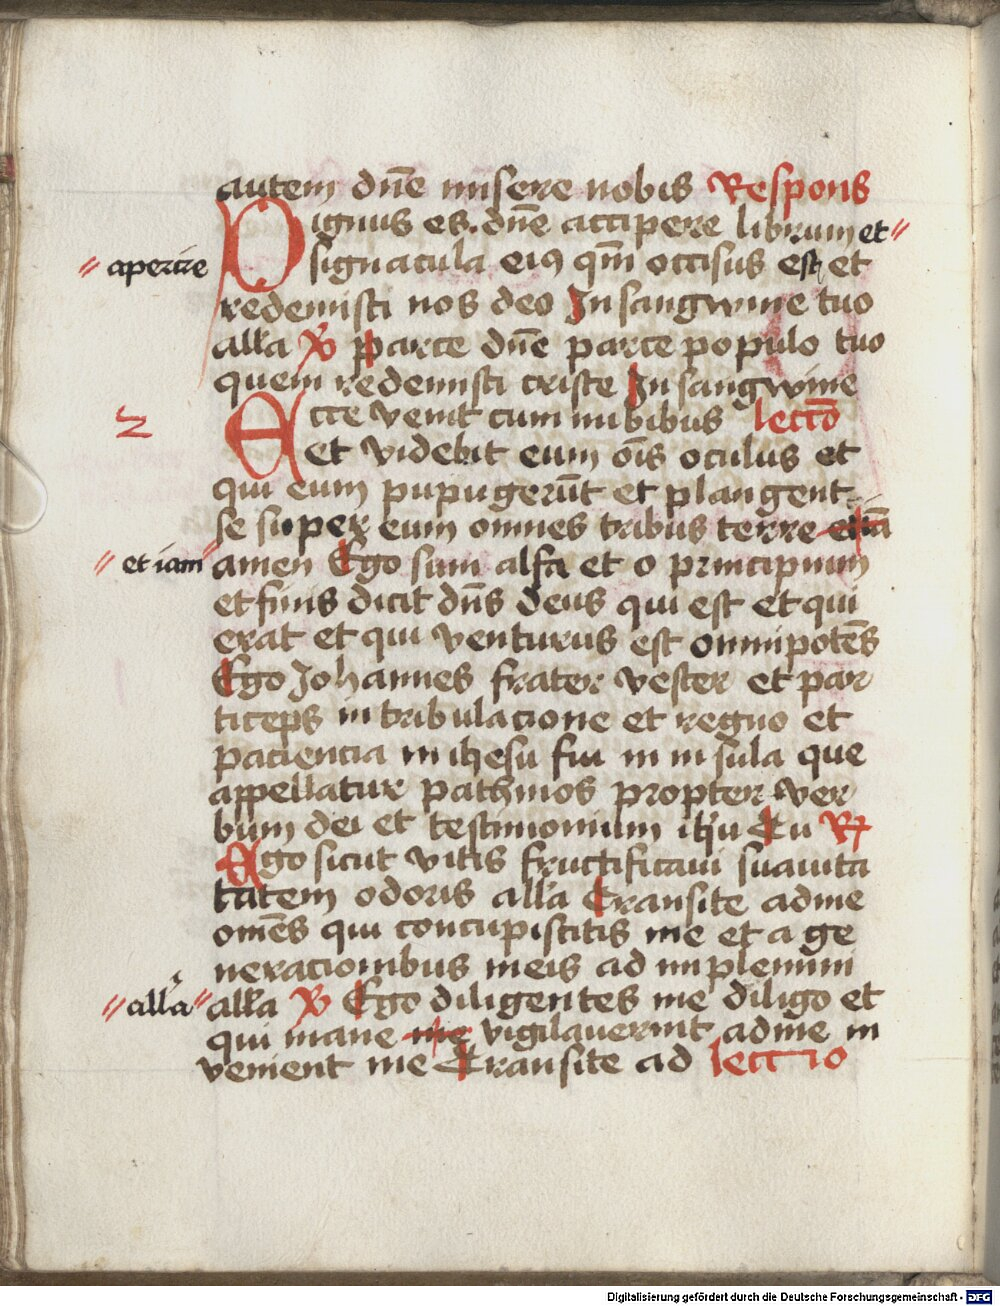 autem dn̄e miserere nobis Respons
Dignus es. dn̄e accipere librum et //
// aperire signacula eiꝯ qm̄ occisus est et
redemisti nos deo In sangwine tuo
alla ꝟ Parce dn̄e parce populo tuo
quem redemisti criste In sangwine
2 Ecce venit cum nubibus lectō
et videbit eum ōis oculus et
qui eum pupugerūt et plangent
se super eum omnes tribus terre
// et iam // amen Ego sum alfa et o principium
et finis dicit dn̄s deus qui est et qui
erat et qui venturus est omnipotēs
Ego Johannes frater vester et par
ticeps in tribulacione et regno et
paciencia in ihesu fui in insula que
appellatur pathmos propter ver
bum dei et testimonium ih̄u Tu R
Ego sicut vitis fructificaui suauita
tatem odoris alla Transite adme
omēs qui concupiscitis me et a ge
neracionibus meis ad implemini
// alla // alla ꝟ Ego diligentes me diligo et
qui mane me vigilauerint adme in
venient me Transite ad lectio
Digitalisierung gefördert durch die Deutsche Forschungsgemeinschaft - DFG